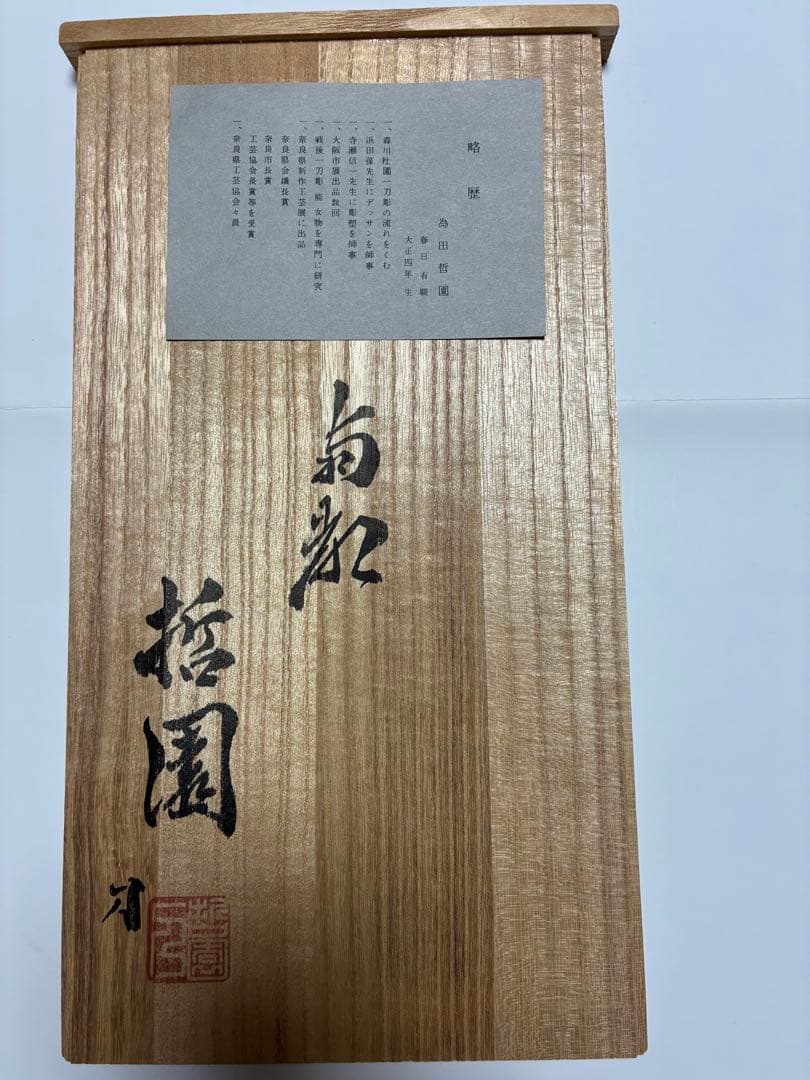 略歴
為田哲園
春日有職
大正四年生
一、森川杜園一刀彫の流れをくむ
一、浜田葆先生にデッサンを師事
一、寺瀬信一先生に彫塑を師事
一、大阪市展出品数回
一、戦後一刀彫 能 女物を専門に研究
一、奈良県新作工芸展に出品
奈良県会議長賞
奈良市長賞
工芸協会長賞等を受賞
一、奈良県工芸協会々員
哲園